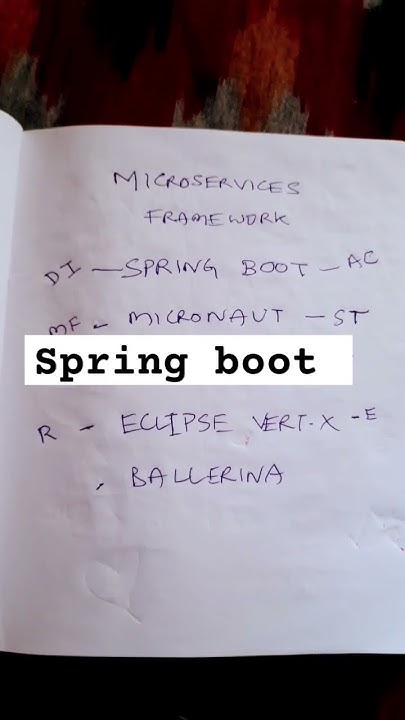 MICROSERVICES
FRAMEWORK
DI — SPRING BOOT — AC
MF - MICRONAUT - ST
Spring boot
R - ECLIPSE VERT.X - E
, BALLERINA